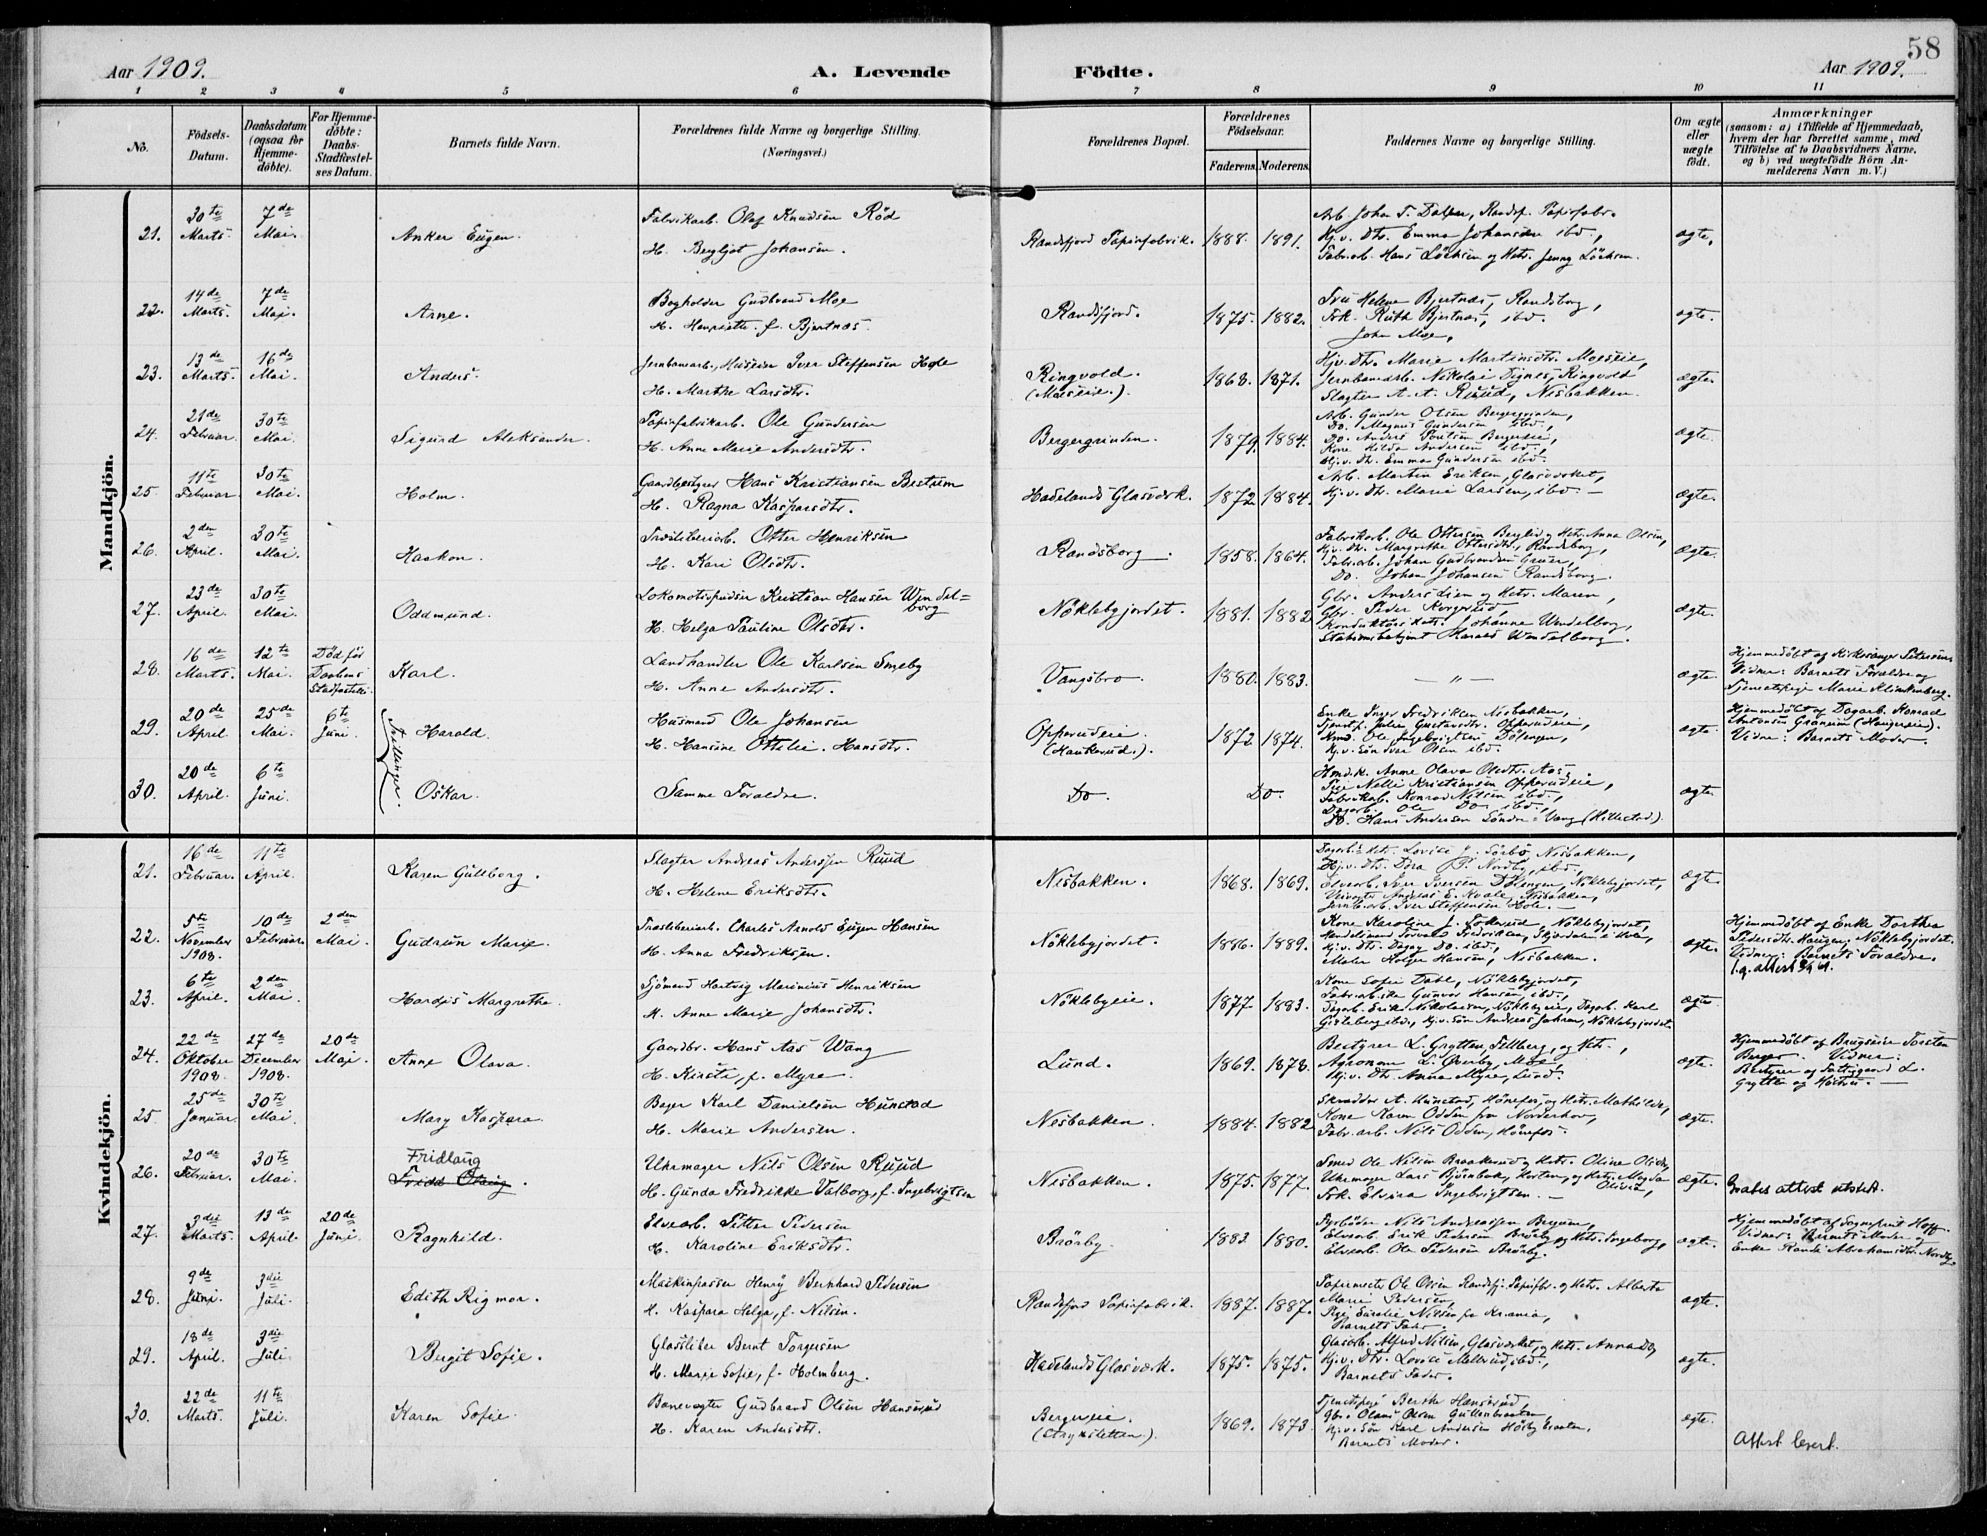 58
Aar 1909.
A. Levende Födte.
Aar 1909.
1 2 3 4 5 6 7 8 9 10 11
No.
Födsels-Datum.
Daabsdatum (ogsaa for Hjemme-döbte).
For Hjemme-döbte: Daabs-Stadfæstel-ses Datum.
Barnets fulde Navn.
Forældrenes fulde Navne og borgerlige Stilling.
(Næringsvei.)
Forældrenes Bopæl.
Forældrenes Födselsaar.
Faderens. Moderens.
Faddernes Navne og borgerlige Stilling.
Om ægte eller uægte födt.
Anmærkninger
(saasom: a) i Tilfælde af Hjemmedaab, hvem der har forrettet samme, med Tilföielse af to Daabsvidners Navne, og b) ved uægtefödte Börn An-melderens Navn m. V.)
Mandkjön.
21. 30te Marts. 7de Mai. Anker Eugen.
Fabrikarb. Olaf Knudsen Röd
H. Bergljot Johansen.
Randsfjord Papirfabrik. 1888. 1891.
Arb. Johan T. Randsf. Papirfabr.
Hj.v. Dtr. Emma Johansen ibd.,
Fabr.arb. Hans Löchsen og Hstr. Jenny Löchsen.
ægte.
22. 14de Marts. 7de Mai. Arne.
Bogholder Gudbrand Moe
H. Henriette f. Bjertnæs.
Randsfjord. 1875. 1882.
Fru Helene Bjertnæs, Randsborg,
Frk. Ruth Bjertnæs, ibd.
John Moe.
ægte.
23. 13de Marts. 16de Mai. Anders.
Jernbanearb., Huseier Iver Steffensen Hole
H. Marthe Larsdtr.
Ringvold. (Moeseie.) 1868. 1871.
Hj.v. Dtr. Marie Martinsdtr. Moeseie,
Jernbanearb. Nikolai Signes, Ringvold
Slagter A. A. Ruud, Nesbakken.
ægte.
24. 21de Februar. 30te Mai. Sigurd Aleksander.
Papirfabrikarb. Ole Gundersen
H. Anne Marie Andersdtr.
Bergergrinden. 1879. 1884.
Arb. Gunder Olsen Bergergrinden,
Do. Magnus Gundersen ibd.,
Do. Anders Poulsen Bergseie,
Kone Hilda Andersen ibd.,
Hj.v. Dtr. Emma Gundersen ibd.
ægte.
25. 11te Februar 30te Mai. Holm.
Gaardbestyrer Hans Kristiansen Bestum
H. Ragna Kaspersdtr.
Hadelands Glasværk. 1872. 1884.
Arb. Martin Eriksen, Glasværket,
Hj.v. Dtr. Marie Larsen, ibd. —
ægte.
26. 2den April. 30te Mai. Haakon.
Træsliberiarb. Otter Henriksen
H. Kari Olsdtr.
Randsborg. 1858. 1864.
Fabrikarb. Ole Ottersen Berglid og Hstr. Anna Olsen,
Hj.v. Dtr. Margrethe Ottersdtr., Randsborg,
Fabr.arb. Johan Gudbrandsen
Do. Johan Johansen Randsborg.
ægte.
27. 23de April. 30te Mai. Oddmund.
Lokomotivpudser Kristian Hansen Wendel=
borg
H. Helga Pauline Olsdtr.
Nöklebyjordet. 1881. 1882
Gbr. Anders Lien og Hstr. Maren,
Gbr. Peder Korgerud,
Konduktörs Hstr. Johanne Wendelborg,
Stationsbetjent Harald Wendelborg.
ægte.
28. 16de Marts. 12te Mai. Död för Daabens Stadfæstelse. Karl.
Landhandler Ole Karlsen Smeby
H. Anne Andersdtr.
Vangsbro. 1880. 1883. — „ — ægte.
Hjemmedöbt af Kirkesanger Petersen.
Vidner: Barnets Forældre og
Tjenestepige Marie Klinkenberg.
29. 20de April 25de Mai. 6te Juni. Tvillinger. Harald.
Husmand Ole Johansen
H. Hansine Ottilie Hansdtr.
Opperudeie. (Haukerud.) 1872. 1874.
Enke Inger Fredriksen Nesbakken,
Tjenstp. Julie Gustavsdtr. Opperudeie,
Hmd. Ole Ingebrigtsen Dölengen,
Hj.v. Sön Iver Olsen ibd.
ægte.
Hjemmedöbt af Dagarb. Konrad
Antonsen Granum (Haugerseie).
Vidne: Barnets Moder.
30. 20de April. 6te Juni. Oskar.
Samme Forældre.
Do. Do.
Hmd.k. Anne Olava Olsdtr. Aas,
Pige Nelli Kristiansen Opperudeie,
Fabrikarb. Konrad Nilsen ibd.,
Dagarb. Ole Do. ibd.,
Do. Hans Andersen Söndre Vang (Hillestad).
ægte.
Kvindekjön.
21. 16de Februar. 11te April. Karen Gullborg.
Slagter Andreas Anderssen Ruud
H. Helene Eriksdtr.
Nesbakken. 1868. 1869.
Dagarb. Hstr. Lovise J. Sörbö, Nesbakken,
Hj.v. Dtr. Dora P. Nordby, ibd.,
Elvearb. Iver Iversen Dölengen, Nöklebyjordet,
Veivogter Andreas E. Kvale, Nesbakken,
Jernb.arb. Iver Steffensen Hole. —
ægte.
22. 5te November 1908. 10de Februar. 2den Mai. Gudrun Marie.
Træsliberiarb. Charles Arnold Eugen Hansen
H. Anna Fredriksen.
Nöklebyjordet. 1886. 1889.
Kone Karoline J. Tokerud, Nöklebyjordet,
Handelsmand Torvald Fredriksen, Skjærdalen i Hole,
Hj.v. Dtr. Dagny Do. ibd.,
Maler Holger Hansen, Nesbakken.
ægte.
Hjemmedöbt af Enke Dorthea
Pedersdtr. Haugen, Nöklebyjordet.
Vidner: Barnets Forældre.
23. 6te April. 2den Mai. Hardis Margrethe.
Sjömand Hartvig Marinius Henriksen
H. Anne Marie Johansdtr.
Nöklebyeie. 1877. 1883.
Kone Sofie Dahl, Nöklebyjordet,
Fabr.arb.ske Gunvor Hansen, ibd.,
Dagarb. Erik Nikolaisen, Nöklebyeie, Dagarb. Karl
Göteberg ibd., Hj.v. Sön Andreas Johnsen, Nöklebyjordet.
ægte.
24. 22de Oktober 1908. 27de December 1908. 20de Mai. Anne Olava.
Gaardbr. Hans Aas Wang
H. Kirsti, f. Myre.
Lund. 1869. 1878.
Bestyrer L. Grytten, Sølberg, og Hstr.,
Agronom L. Överby, Moe,
Hj.v. Dtr. Anna Myre, Lund.
ægte.
Hjemmedöbt af Brugseier Torsten
Berger. Vidner:
Bestyrer og L.
Grytten og Hustru. —
25. 25de Januar. 30te Mai. Mary Kaspara.
Bager Karl Danielsen Hunstad
H. Marie Andersen.
Nesbakken. 1884. 1882
Skrædder A. Hunstad, Hönefos, og Hstr. Mathilde,
Kone Karen Odden fra Norderhov,
Fabr.arb. Nils Odden, Hönefos.
ægte.
26. 20de Februar. 30te Mai. Fridlaug
Uhrmager Nils Olsen Ruud
H. Gunda Fredrikke Valborg, f. Ingebrigtsen
Nesbakken. 1875. 1877.
Smed Ole Nilsen Braakerud og Hstr. Oline Olsdtr,
Uhrmager Lars Björnbak, Horten, og Hstr. Magda
Olivia,
Frk. Elvira Ingebrigtsen. —
ægte.
Daabs attest utstedt.
27. 3die Marts. 13de April. 20de Juni. Ragnhild.
Elvearb. Petter Pedersen
H. Karoline Eriksdtr.
Brörby. 1883. 1880.
Fyrböder Nils Andreassen Bergum,
Elvearb. Erik Pedersen Brörby og Hstr. Ingeborg,
Elvearb. Ole Pedersen Brörby.
ægte.
Hjemmedöbt af Sogneprest Hoff.
Vidner: Barnets Moder og
Enke Randi Abrahamsdtr. Nordby.
28. 9de Juni. 3die Juli. Edith Rigmor.
Maskinpasser Henry Bernhard Pedersen
H. Kaspara Helga, f. Nilsen.
Randsfjord Papirfabrik. 1887. 1887.
Papirmester Ole Olsen Randsfj. Papirfbr. og Hstr. Alberta
Marie Pedersen,
Pige Nilsen fra Krania,
Barnets Fader.
ægte.
29. 18de April. 3die Juli. Birgit Sofie.
Glassliber Bernt Torgersen
H. Marie Sofie, f. Holmberg.
Hadelands Glasværk. 1875. 1875.
Glasarb. Alfred Nilsen, Glasværket, og Hstr. Anna Do,
Hj.v. Dtr. Lovise Mellerud ibd.,
Barnets Fader.
ægte.
30. 22de Marts. 11te Juli. Karen Sofie.
Banevogter Gudbrand Olsen Hanserud
H. Karen Andersdtr.
Bergerseie. 1869. 1873
Tjenestepige Berthe Hanserud,
Gbr. Olaus Olsen Gullenbraaten
Hj.v. Sön Karl Andersen Höiby Braaten,
Barnets Moder.
ægte.
Attest levert.